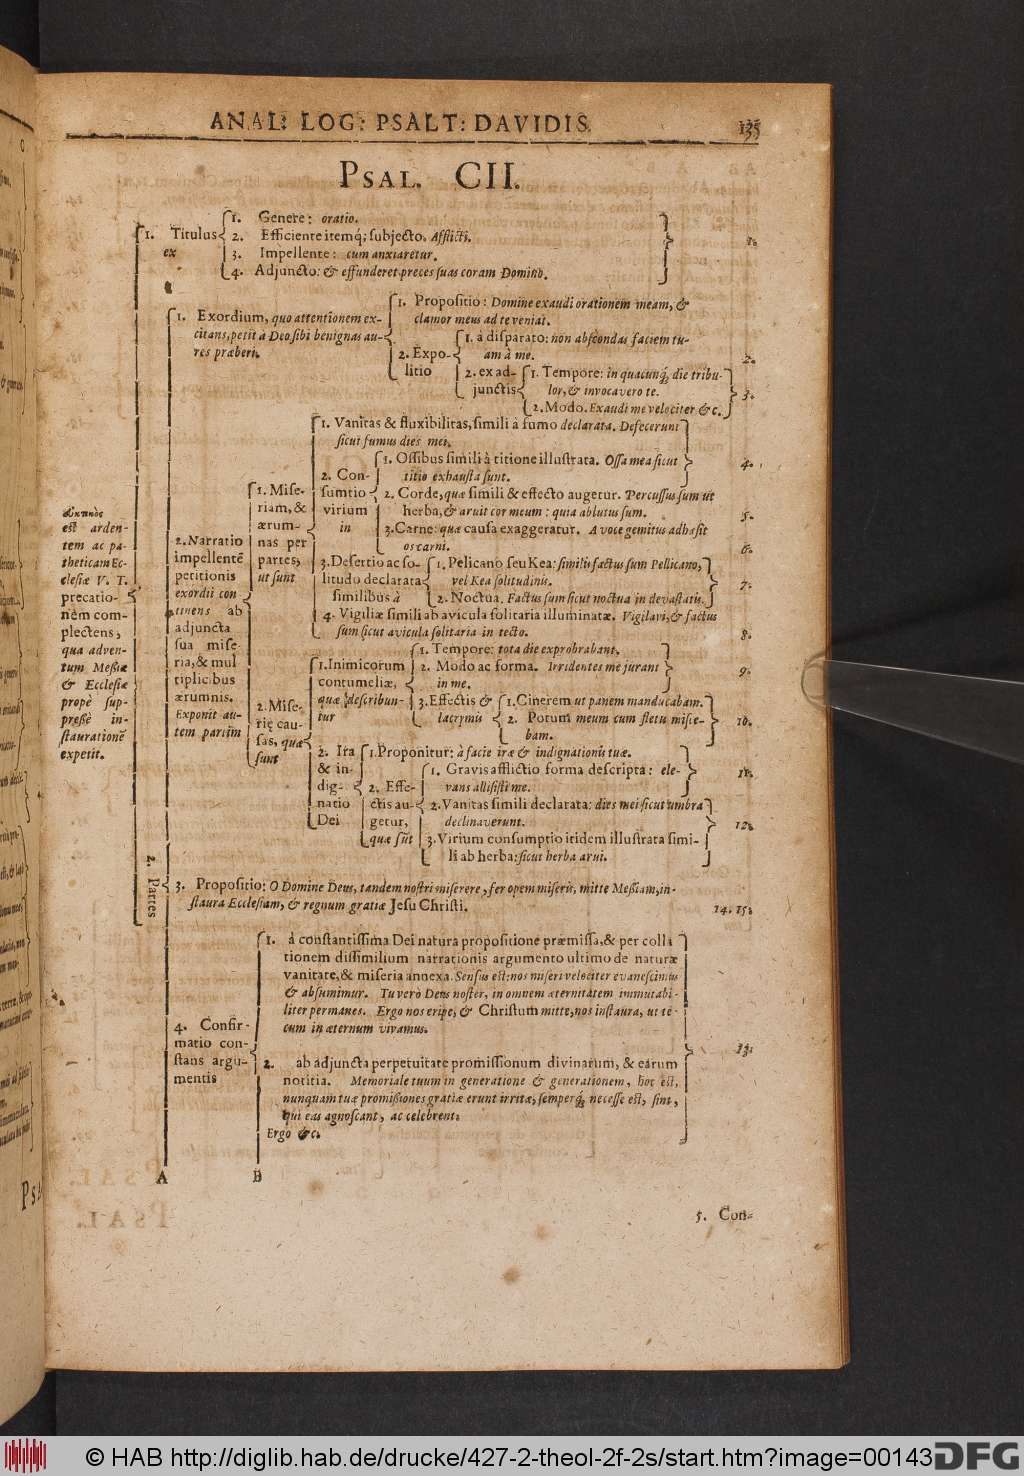 ANAL: LOG: PSALT: DAVIDIS.
135
PSAL. CII.
εὐκτικὸς
est arden-
tem ac pa-
theticam Ec-
clesiæ V. T.
precatio-
nem com-
plectens,
qua adven-
tum Meßiæ
& Ecclesiæ
propè sup-
preßè in-
staurationē
expetit.
1. Titulus
ex
1. Genere: oratio.
2. Efficiente itemq́; subjecto, Afflicti.
3. Impellente: cum anxiaretur.
4. Adjuncto: & effunderet preces suas coram Domino.
1.
2. Partes
1. Exordium, quo attentionem ex-
citans, petit à Deo sibi benignas au-
res præberi.
1. Propositio: Domine exaudi orationem meam, &
clamor meus ad te veniat.
2. Expo-
litio
1. à disparato: non abscondas faciem tu-
am à me.
2.
2. ex ad-
junctis
1. Tempore: in quacunq́, die tribu-
lor, & invocavero te.
2. Modo. Exaudi me velociter &c.
3.
2. Narratio
impellentē
petitionis
exordii con
tinens ab
adjuncta
sua mise-
ria, & mul
tiplicibus
ærumnis.
Exponit au-
tem partim
1. Mise-
riam, &
ærum-
nas per
partes,
ut sunt
1. Vanitas & fluxibilitas, simili à fumo declarata. Defecerunt
sicut fumus dies mei.
2. Con-
sumtio
virium
in
1. Ossibus simili à titione illustrata. Ossa mea sicut
titio exhausta sunt.
4.
2. Corde, quæ simili & effecto augetur. Percussus sum ut
herba, & aruit cor meum: quia ablutus sum.
5.
3. Carne: quæ causa exaggeratur. A voce gemitus adhæsit
os carni.
6.
3. Desertio ac so-
litudo declarata
similibus à
1. Pelicano seu Kea: similis factus sum Pellicano,
vel Kea solitudinis.
2. Noctua. Factus sum sicut noctua in devastatis.
7.
4. Vigiliæ simili ab avicula solitaria illuminatæ. Vigilavi, & factus
sum sicut avicula solitaria in tecto.
8.
2. Mise-
rię cau-
sas, quæ
sunt
1. Inimicorum
contumeliæ,
quæ describun-
tur
1. Tempore: tota die exprobrabant.
2. Modo ac forma. Irridentes me jurant
in me.
9.
3. Effectis &
lacrymis
1. Cinerem ut panem manducabam.
2. Potum meum cum fletu misce-
bam.
10.
2. Ira
& in-
dig-
natio
Dei
1. Proponitur: à facie iræ & indignationis tuæ.
2. Effe-
ctis au-
getur,
quæ sūt
1. Gravis afflictio forma descripta: ele-
vans allisisti me.
11.
2. Vanitas simili declarata: dies mei sicut umbra
declinaverunt.
3. Virium consumptio itidem illustrata simi-
li ab herba: sicut herba arui.
12.
3. Propositio: O Domine Deus, tandem nostri miserere, fer opem miseris, mitte Meßiam, in-
staura Ecclesiam, & regnum gratiæ Jesu Christi.
14. 15.
4. Confir-
matio con-
stans argu-
mentis
1. à constantissima Dei natura propositione præmissa, & per colla
tionem dissimilium narrationis argumento ultimo de naturæ
vanitate, & miseria annexa. Sensus est: nos miseri velociter evanescimus
& absumimur. Tu verò Deus noster, in omnem æternitatem immutabi-
liter permanes. Ergo nos eripe, & Christum mitte, nos instaura, ut te-
cum in æternum vivamus.
2. ab adjuncta perpetuitate promissionum divinarum, & earum
notitia. Memoriale tuum in generatione & generationem, hoc est,
nunquam tuæ promißiones gratiæ erunt irritæ, semperq́, necesse est, sint,
qui eas agnoscant, ac celebrent.
Ergo &c.
13.
A
B
5. Con-
© HAB http://diglib.hab.de/drucke/427-2-theol-2f-2s/start.htm?image=00143
DFG